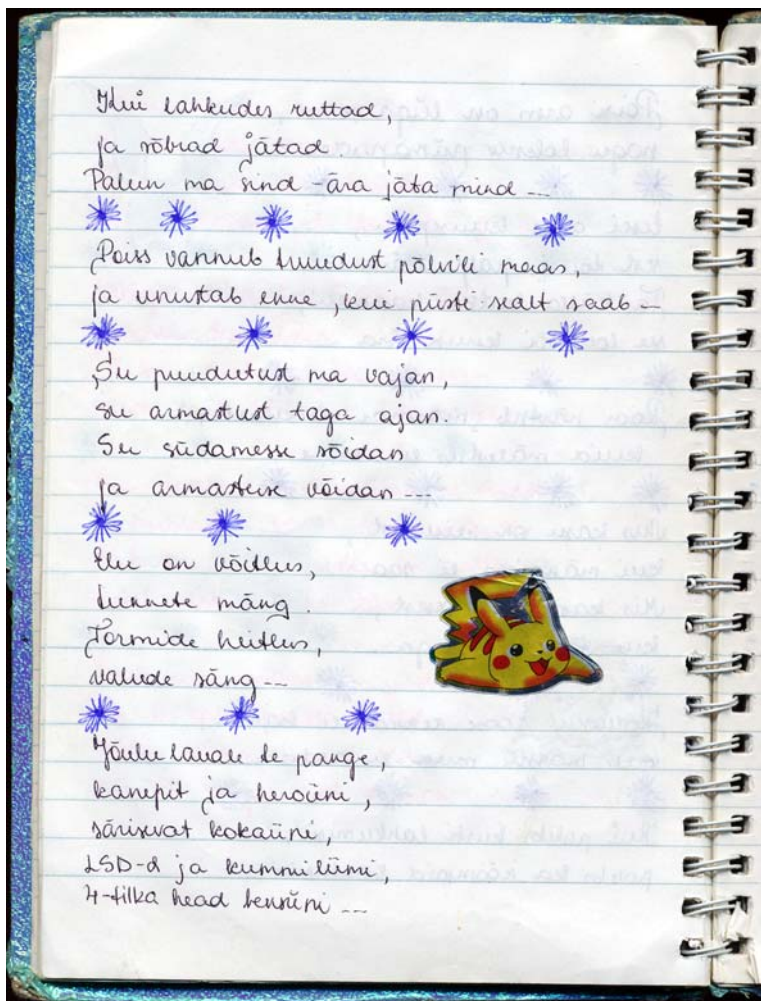 Kui lahkudes ruttad,
ja sõbrad jätad.
Palun ma sind -ära jäta mind ---
Poiss vannub truudust põlvili maas,
ja unustab enne, kui püsti sealt saab --
Su puudutust ma vajan,
su armastust taga ajan.
Su südamesse sõidan
ja armastuse võidan ---
Elu on võitlus,
tunnete mäng.
Tormide heitlus,
valude säng ---
Jõulu lauale te pange,
kanepit ja heroiini,
särisevat kokaiini,
LSD-d ja kummiliimi,
4-tilka head bensiini ---